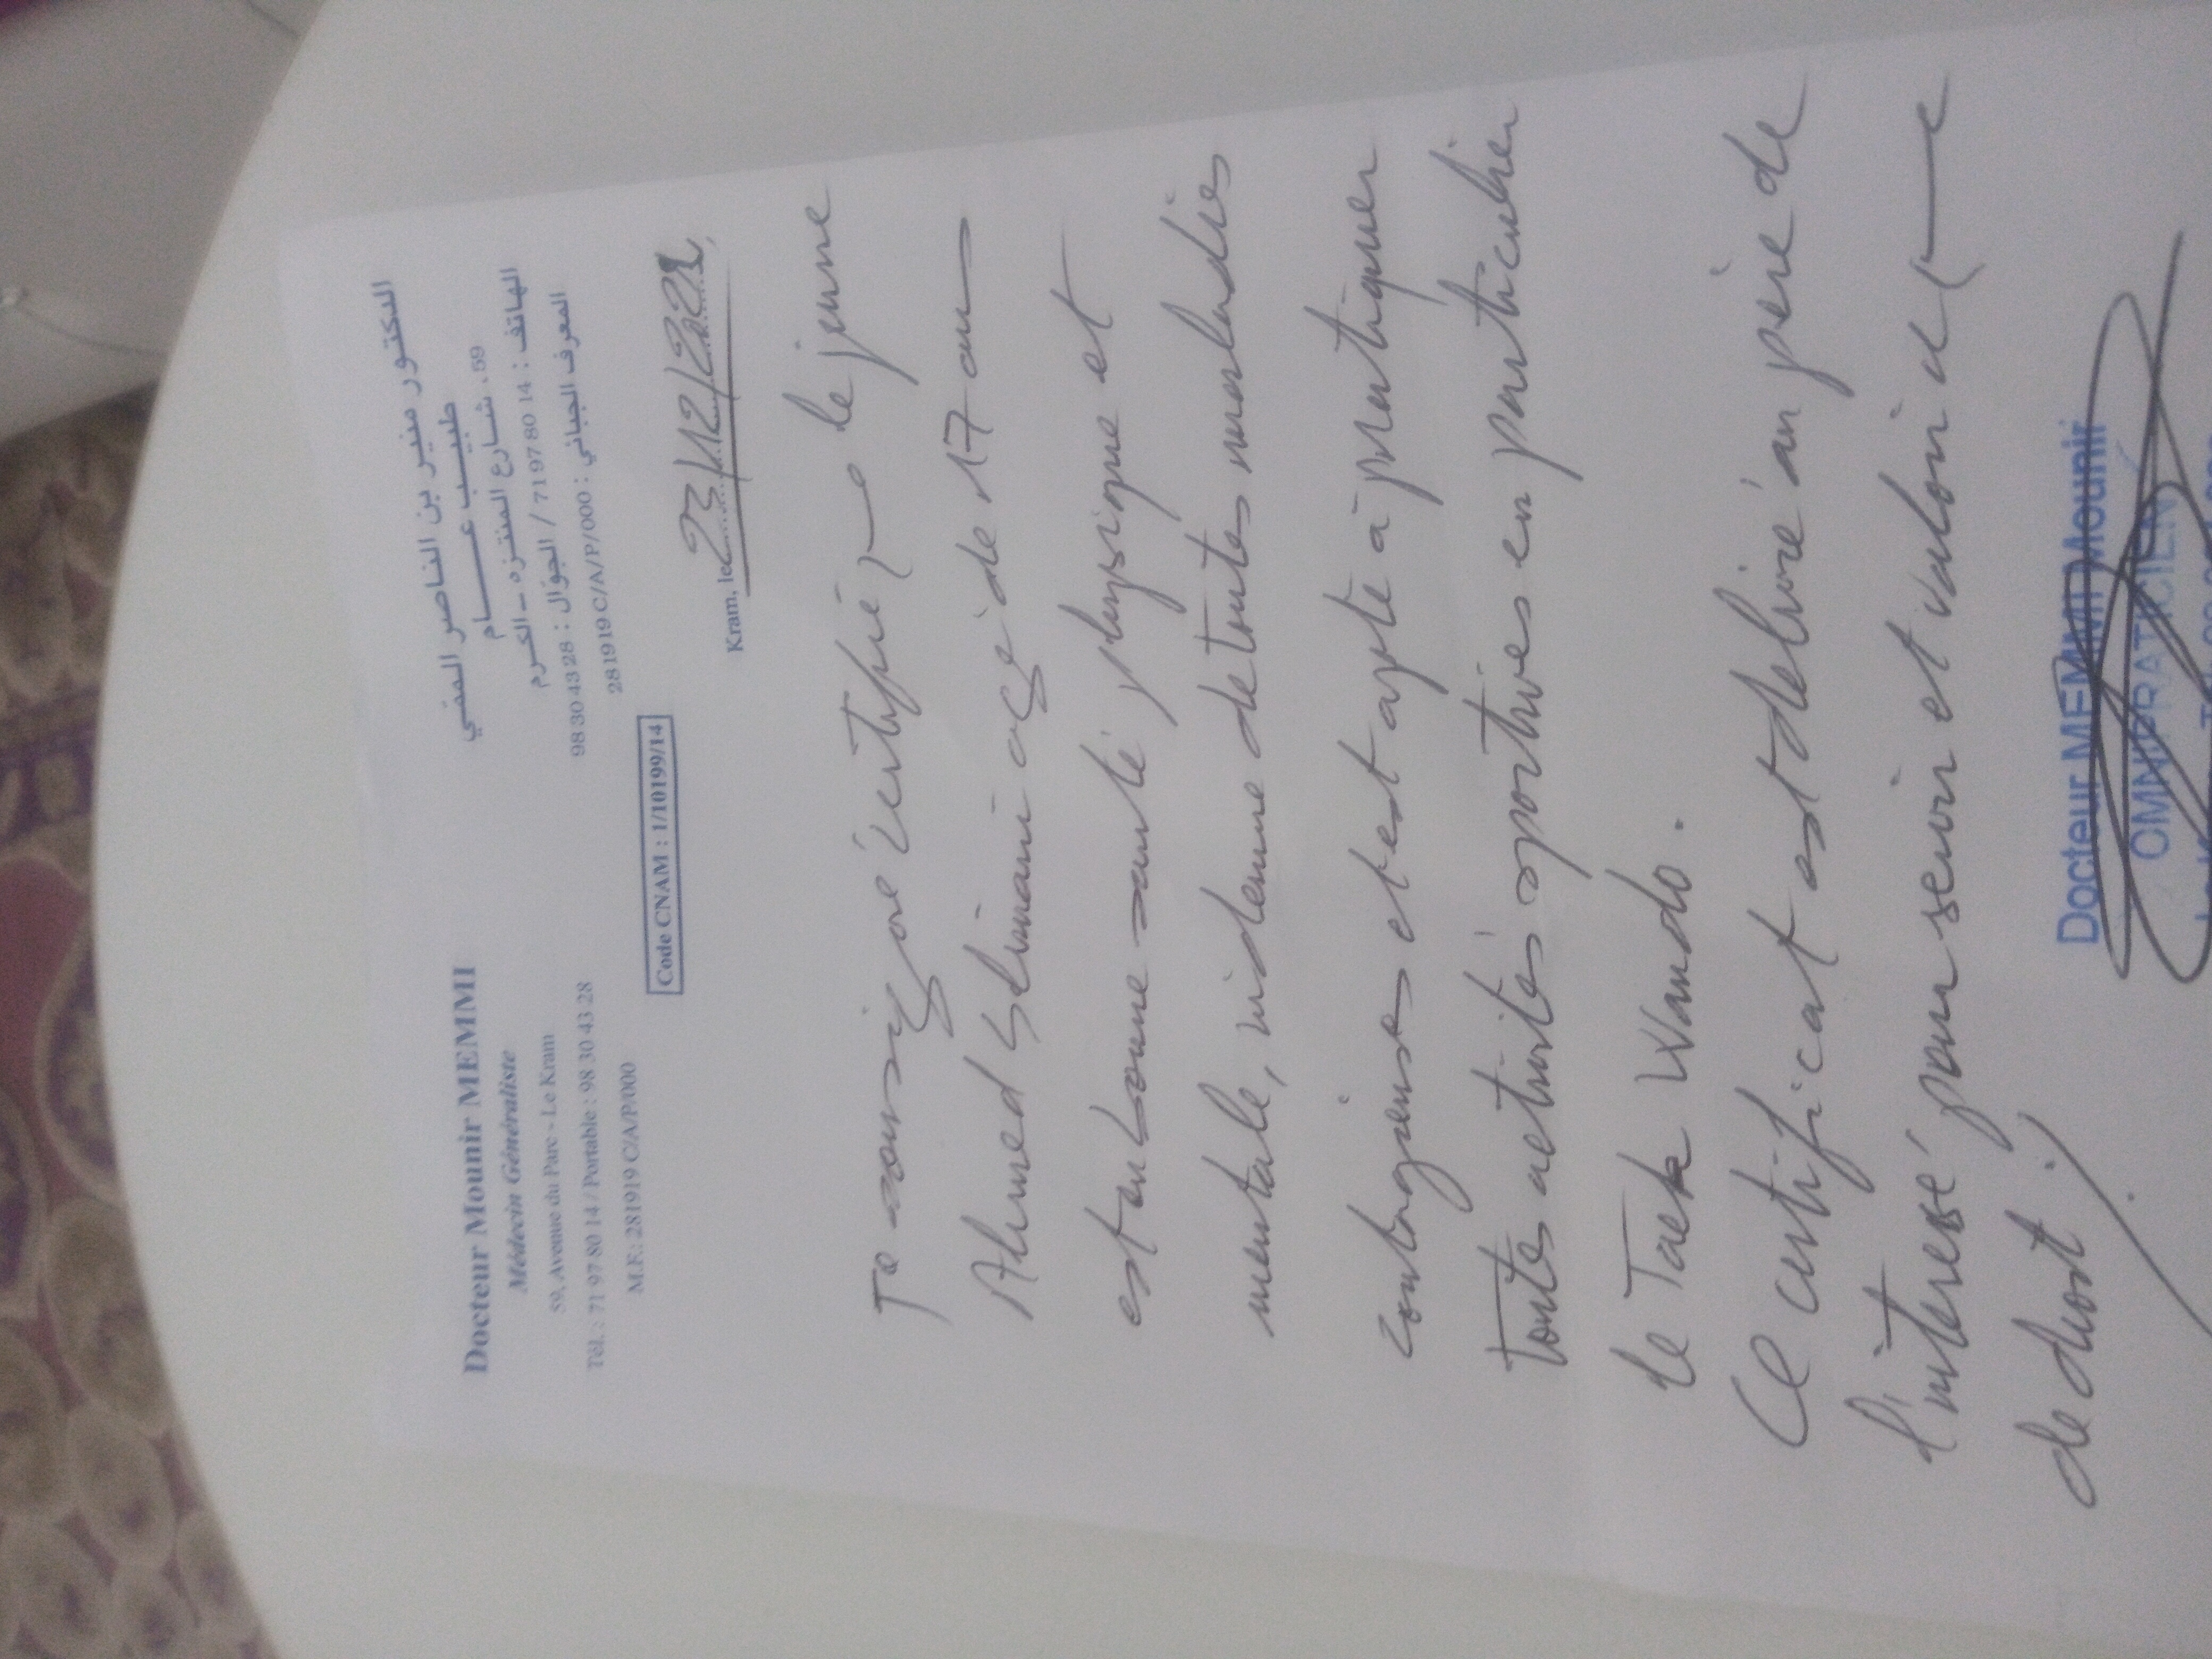 Docteur Mounir MEMMI
Médecin Généraliste
59, Avenue du Parc - Le Kram
Tél. : 71 97 80 14 / Portable : 98 30 43 28
M.F.: 281919 C/A/P/000
الدكتور منير بن الناصر الممّي
طبيب عــــام
59، شارع المنتزه - الكرم
الهاتف : 14 80 97 71 / الجوّال : 28 43 30 98
المعرف الجبائي : 281919 C/A/P/000
Code CNAM : 1/10199/14
Kram, le 23/12/2021
Je soussigné certifie que le jeune
Ahmed Slimani agé de 17 ans
est en bonne santé physique et
mentale, indemne de toutes maladies
contagieuses et est apte à pratiquer
toutes activités sportives en particulier
le Taek Wando.
Ce certificat est delivré au père de
l'interessé pour servir et valoir ce
de droit.
Docteur MEMMI Mounir
OMNIPRATICIEN